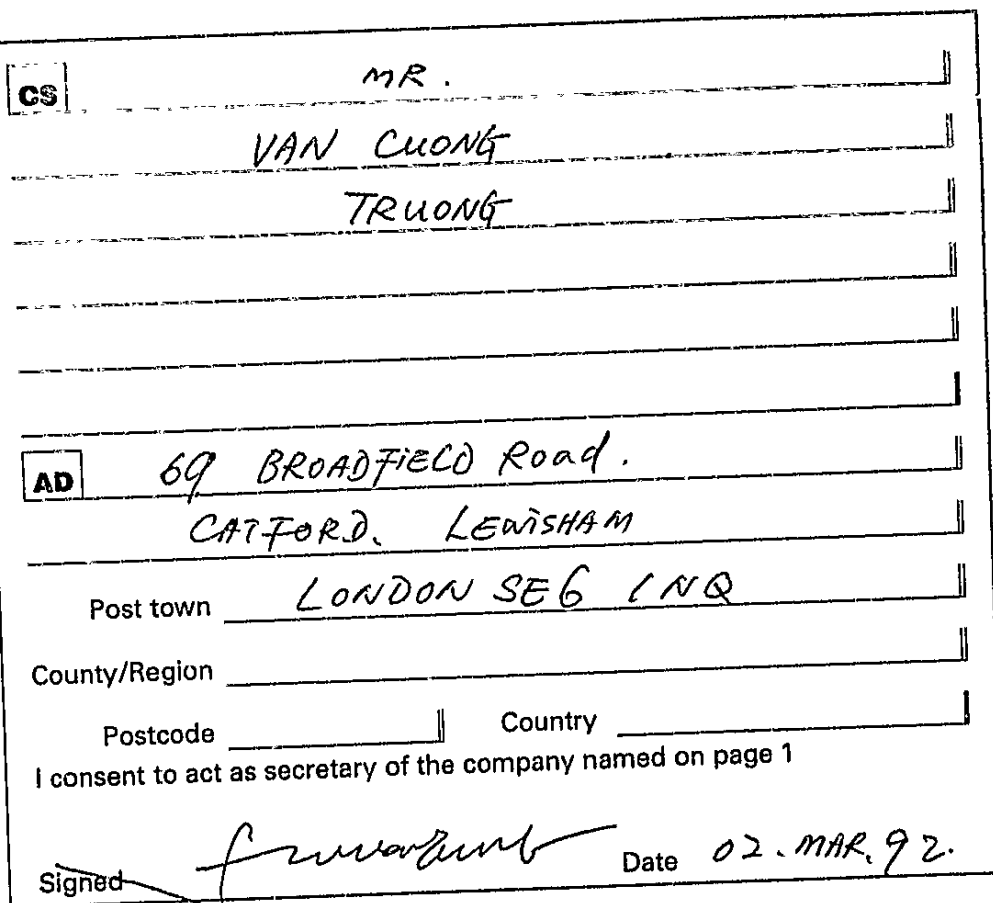 CS MR.
VAN CUONG
TRUONG
AD 69 BROADFIELD Road.
CATFORD. LEWISHAM
Post town LONDON SE6 1NQ
County/Region
Postcode Country
I consent to act as secretary of the company named on page 1
Signed Date 02. MAR. 92.